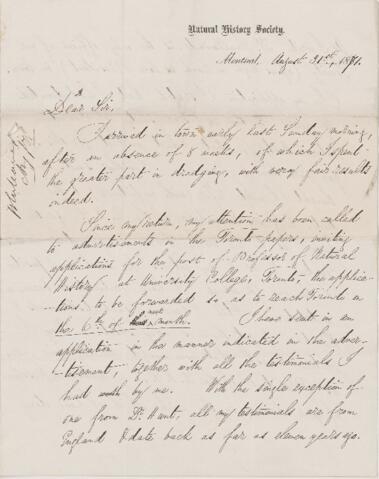 Natural History Society.
Montreal, August 31st, 1871.
Dear Sir,
I arrived in town early last Sunday morning,
after an absence of 8 weeks, of which I spent
the greater part in dredging, with very fair results
indeed.
Since my return, my attention has been called
to advertisements in the Toronto papers, inviting
applications for the post of Professor of Natural
History at University College, Toronto, the applica-
tions to be forwarded so as to reach Toronto on
the 6th of next month. I have sent in an
application in the manner indicated in the adver-
tisement, together with all the testimonials I
had by me. With the single exception of
one from Dr. Hunt, all my testimonials are from
England & date back as far as eleven years ago.